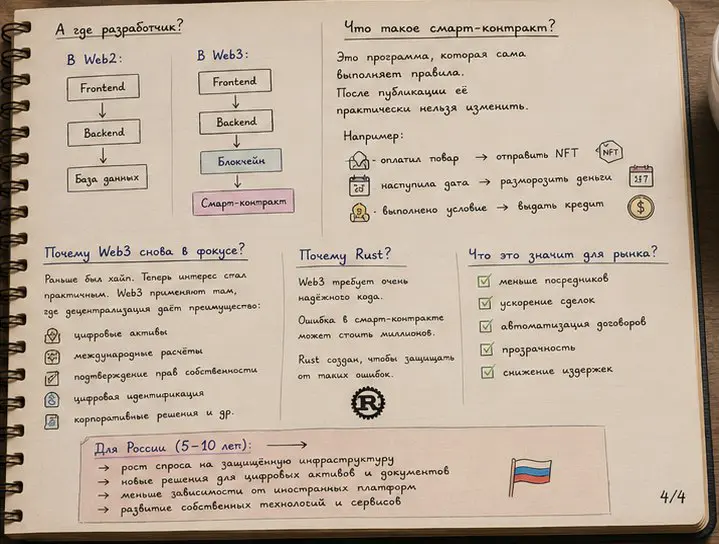 А где разработчик?
В Web2:
Frontend
Backend
База данных
В Web3:
Frontend
Backend
Блокчейн
Смарт-контракт
Что такое смарт-контракт?
Это программа, которая сама
выполняет правила.
После публикации её
практически нельзя изменить.
Например:
· оплатил товар → отправить NFT
NFT
· наступила дата → разморозить деньги
· выполнено условие → выдать кредит
$
Почему Web3 снова в фокусе?
Раньше был хайп. Теперь интерес стал
практичным. Web3 применяют там,
где децентрализация даёт преимущество:
цифровые активы
международные расчёты
подтверждение прав собственности
цифровая идентификация
корпоративные решения и др.
Почему Rust?
Web3 требует очень
надёжного кода.
Ошибка в смарт-контракте
может стоить миллионов.
Rust создан, чтобы защищать
от таких ошибок.
R
Что это значит для рынка?
меньше посредников
ускорение сделок
автоматизация договоров
прозрачность
снижение издержек
Для России (5–10 лет): →
→ рост спроса на защищённую инфраструктуру
→ новые решения для цифровых активов и документов
→ меньше зависимости от иностранных платформ
→ развитие собственных технологий и сервисов
4/4